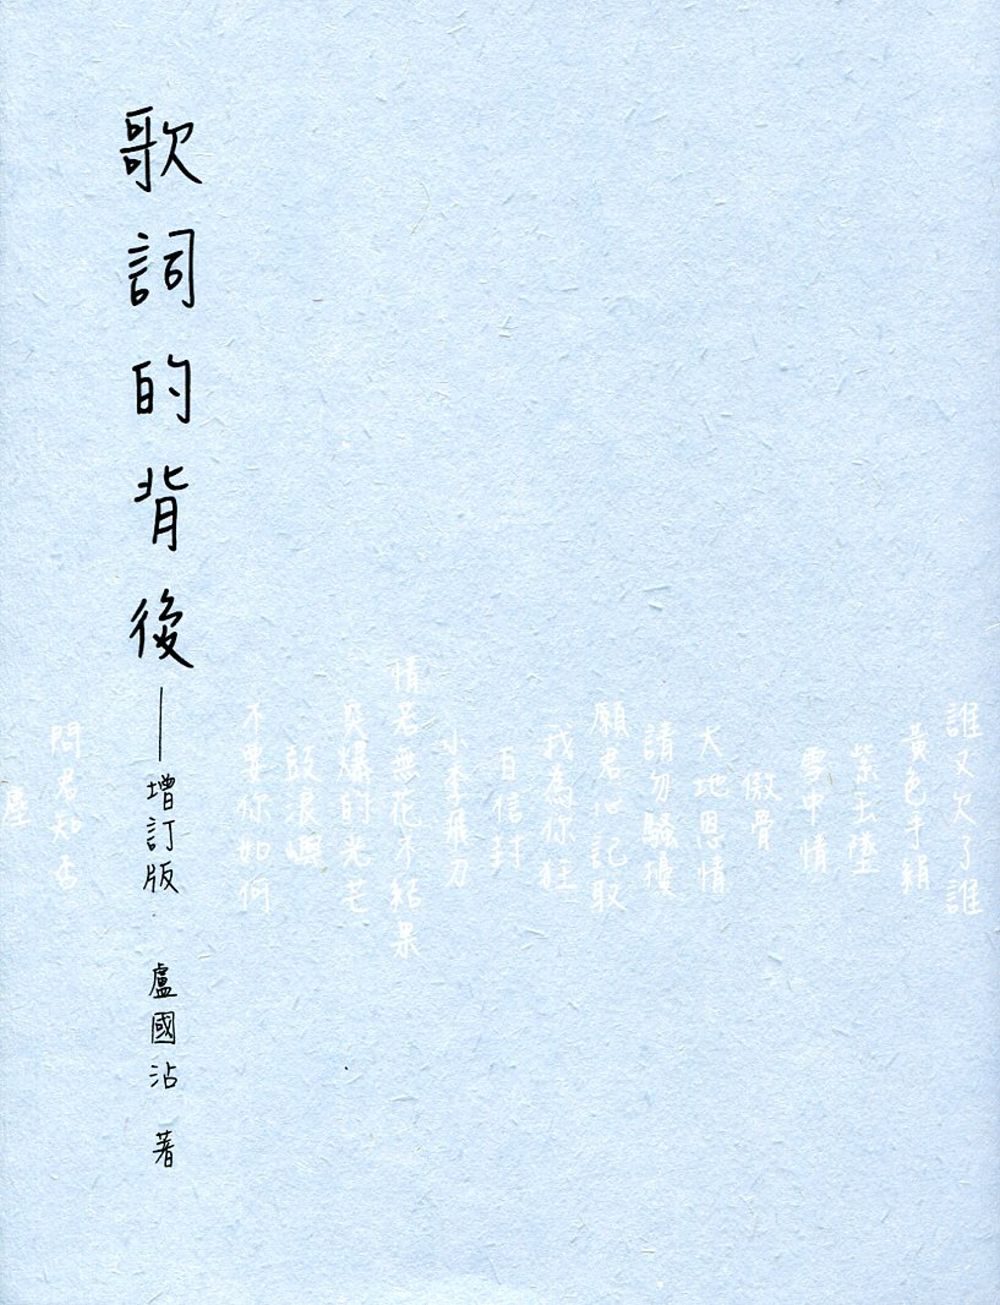 歌詞的背後——增訂版 盧國沾 著
誰又欠了誰
黃色手絹
螢土情
雪中情
傲骨
大地恩情
請勿騷擾
願君心記取
我為你狂
百信封
小李飛刀
情若無花不結果
灵爆的光芒
鼓浪嶼
不要你如何
問君知否
塵